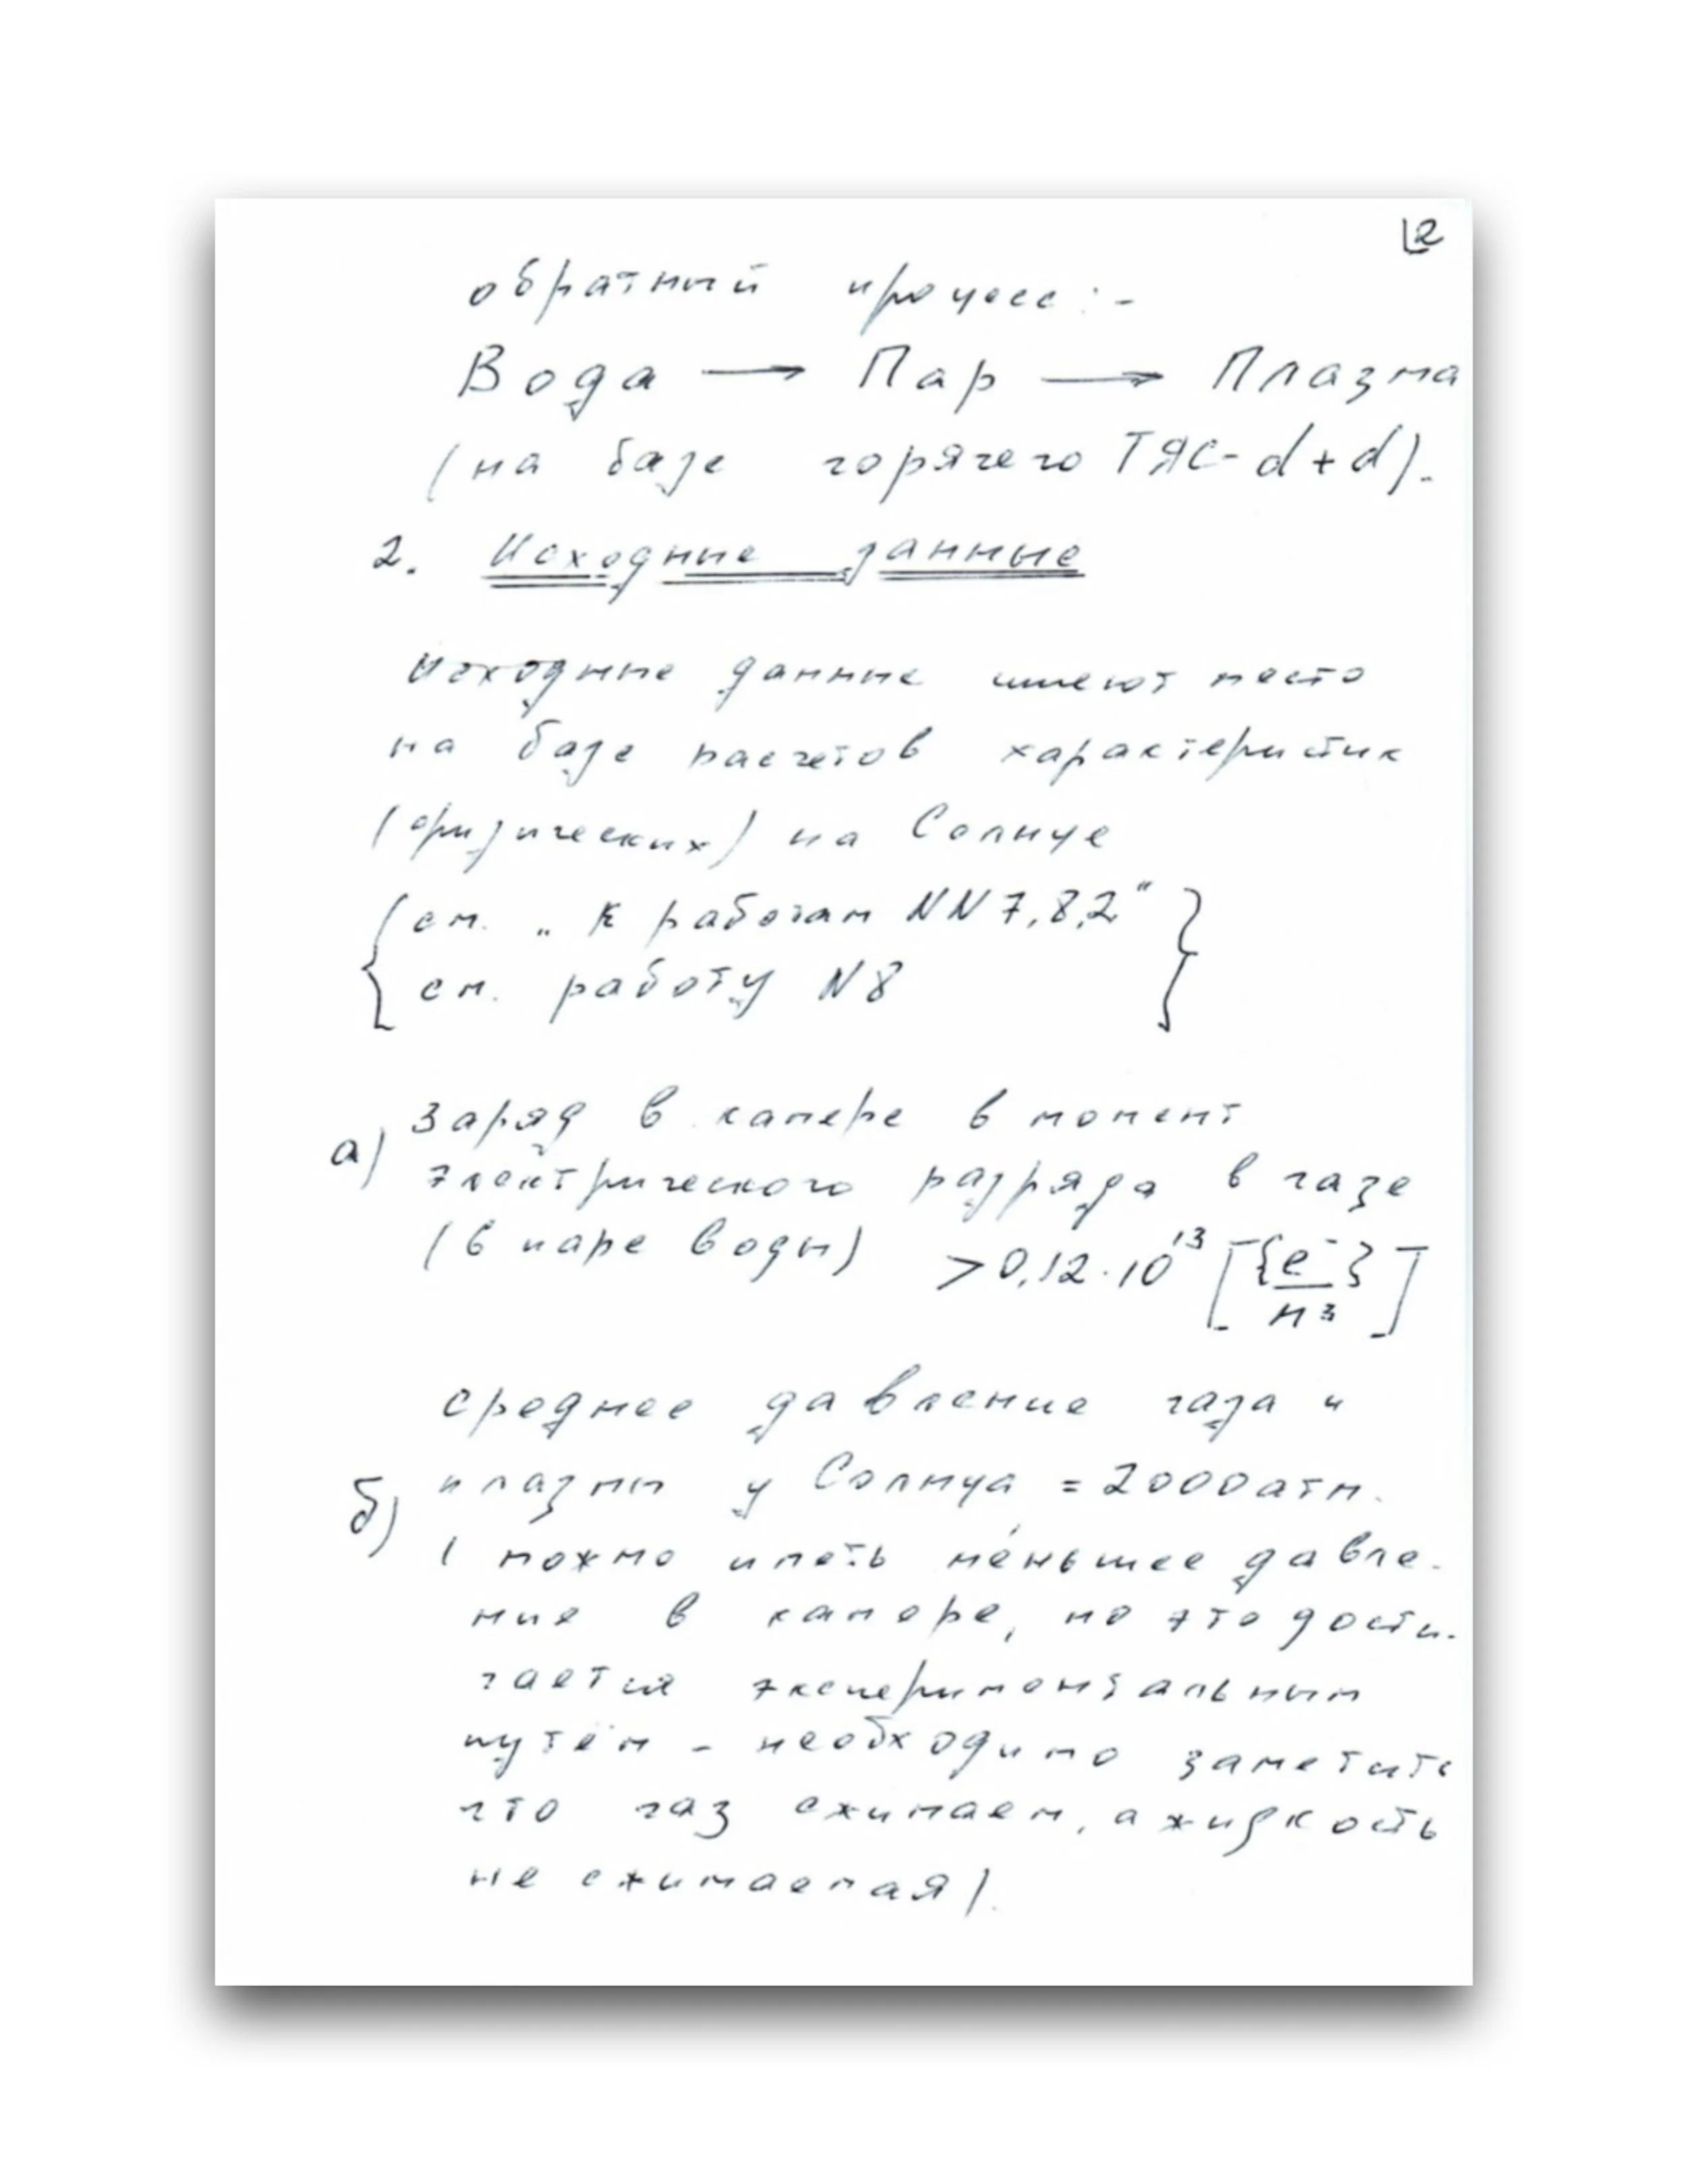 2
обратный процесс:-
Вода → Пар → Плазма
(на базе горячего ТЯС- d+d).
2. Исходные данные
Исходные данные имеют место
на базе расчетов характеристик
(физических) на Солнце
{ см. „К работам NN7,8,2" }
{ см. работу N8 }
а) Заряд в камере в момент
электрического разряда в газе
(в паре воды) >0,12·10¹³ [{e⁻}/м³]
среднее давление газа и
б) плазмы у Солнца = 2000 атм.
( можно иметь ме́ньшее давле-
ние в камере, но это дости-
гается экспериментальным
путём - необходимо заметить
что газ сжимаем, а жидкость
не сжимаемая).